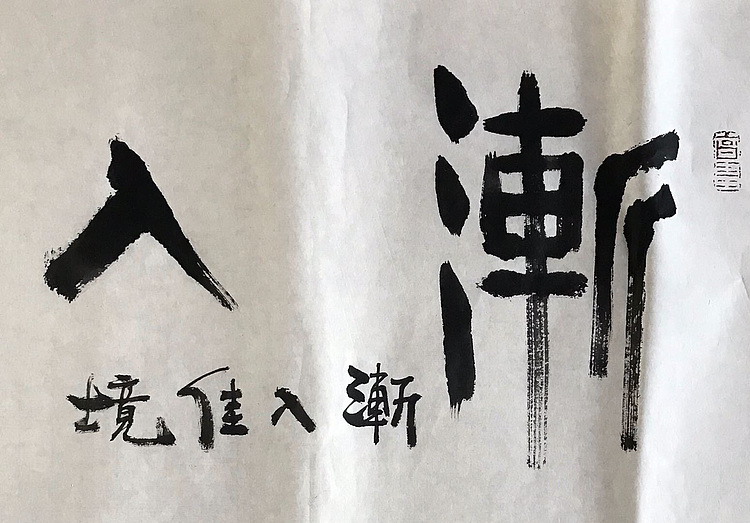 漸入
漸入佳境